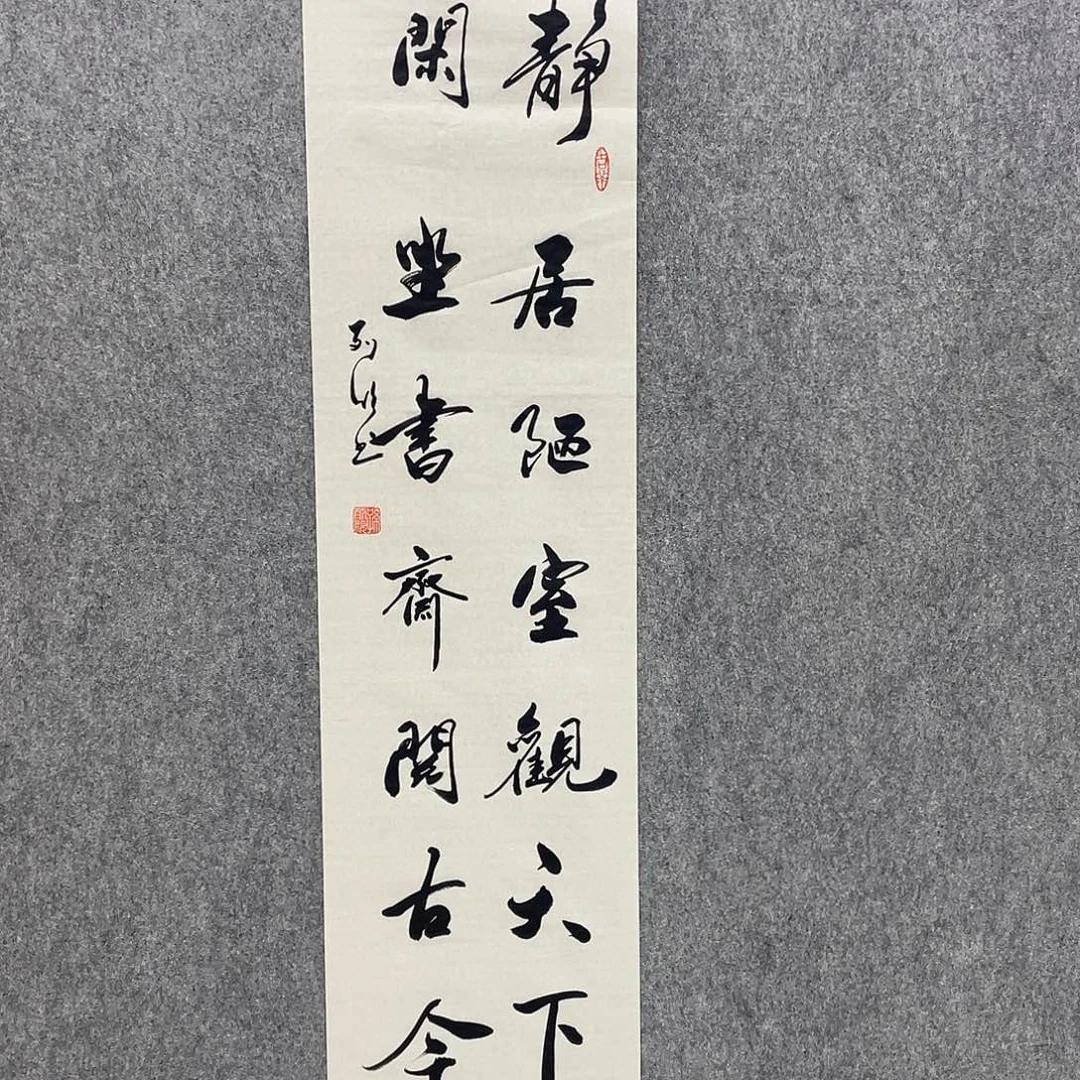 靜居陋室觀天下
閑坐書齋閱古今